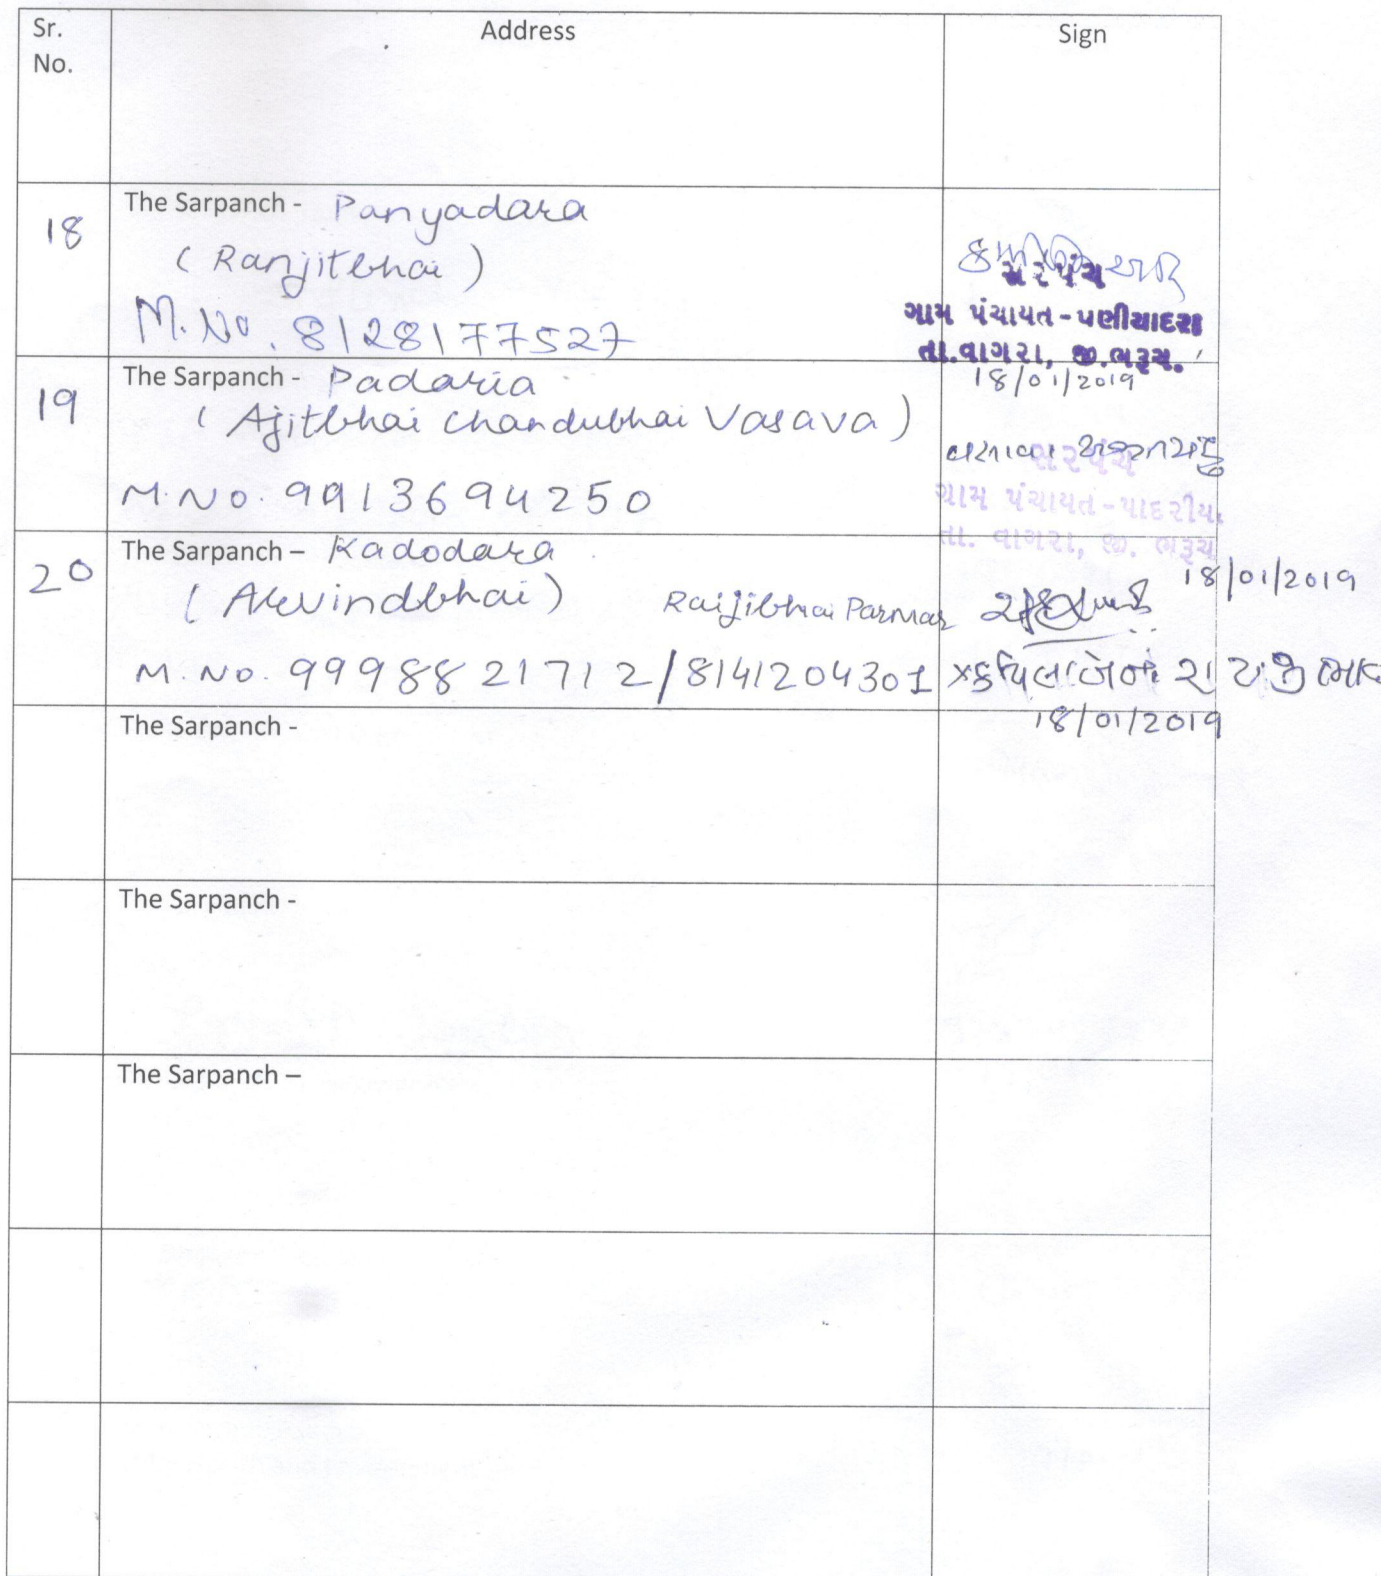 Sr. No.
Address
Sign
18
The Sarpanch - Panyadara
(Ranjitbhai)
M. No. 8128177527
સરપંચ
ગ્રામ પંચાયત-પણીયાદરા
તા.વાગરા, જી.ભરૂચ.
18/01/2019
19
The Sarpanch - Padaria
(Ajitbhai Chandubhai Vasava)
M. No. 9913694250
સરપંચ
ગ્રામ પંચાયત-પાદરીયા
તા. વાગરા, જી. ભરૂચ
18/01/2019
20
The Sarpanch – Kadodara
(Arvindbhai) Raijibhai Parmar
M. No. 9998821712/8141204301
18/01/2019
The Sarpanch -
The Sarpanch -
The Sarpanch –